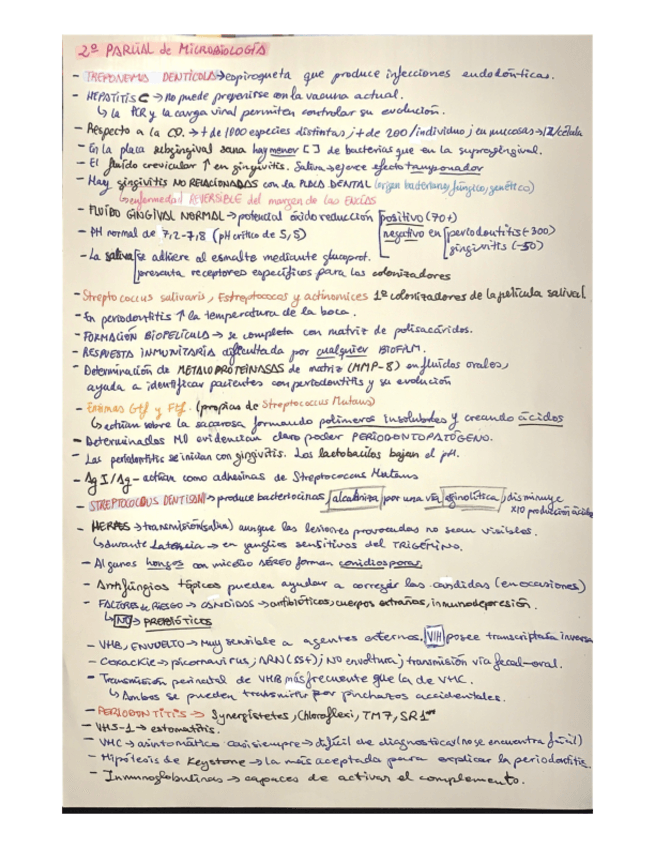 2º PARCIAL de MICROBIOLOGÍA
- TREPONEMA DENTICOLA → espiroqueta que produce infecciones endodónticas.
- HEPATITIS C → No puede prevenirse con la vacuna actual.
↳ la PCR y la carga viral permiten controlar su evolución.
- Respecto a la CO. → + de 1000 especies distintas ; + de 200/individuo ; en mucosas → /célula
- En la placa subgingival sana hay menor [ ] de bacterias que en la supragingival.
- El fluido crevicular ↑ en gingivitis. Saliva → ejerce efecto tamponador
- Hay gingivitis NO RELACIONADAS con la PLACA DENTAL (origen bacteriano, fúngico, genético)
↳ enfermedad REVERSIBLE del margen de las ENCÍAS
- FLUIDO GINGIVAL NORMAL → potencial óxido reducción positivo (70+)
negativo en periodontitis (-300)
gingivitis (-50)
- PH normal de 7,2-7,8 (pH crítico de 5,5)
- La saliva se adhiere al esmalte mediante glucoprot.
presenta receptores específicos para los colonizadores
- Streptococcus salivaris, Estreptococos y actinomices 1º colonizadores de la película salival
- En periodontitis ↑ la temperatura de la boca.
- FORMACIÓN BIOPELÍCULA → se completa con matriz de polisacáridos.
- RESPUESTA INMUNITARIA dificultada por cualquier BIOFILM.
- Determinación de METALOPROTEINASAS de matriz (MMP-8) en fluidos orales,
ayuda a identificar pacientes con periodontitis y su evolución
- Enzimas Gtf y Ftf. (propias de Streptococcus Mutans)
↳ actúan sobre la sacarosa formando polímeros insolubles y creando ácidos
- Determinados MO evidencian claro poder PERIODONTOPATÓGENO.
- Las periodontitis se inician con gingivitis. Los lactobacilos bajan el pH.
- Ag I/Ag - actúan como adhesinas de Streptococcus Mutans
- STREPTOCOCCUS DENTISANI → produce bacteriocinas, alcaliniza por una vía arginolítica, disminuye
x10 producción ácidos
- HERPES → transmisión (saliva) aunque las lesiones provocadas no sean visibles.
↳ durante Latencia → en ganglios sensitivos del TRIGÉMINO.
- Algunos hongos con micelio AÉREO forman conidiosporas.
- Antifúngios tópicos pueden ayudar a corregir las candidas (en ocasiones)
- FACTORES de RIESGO → CANDIDAS → antibióticos, cuerpos extraños, inmunodepresión.
↳ NO → PREBIÓTICOS
- VHB, ENVUELTO → Muy sensible a agentes externos. VIH posee transcriptasa inversa
- Coxackie → picornavirus ; ARN(SS+) ; NO envoltura ; transmisión vía fecal-oral.
- Transmisión perinatal de VHB más frecuente que la de VHC.
↳ Ambos se pueden transmitir por pinchazos accidentales.
- PERIODONTITIS → Synergistetes, Chloroflexi, TM7, SR1
- VHS-1 → estomatitis.
- VHC → asintomático casi siempre → difícil de diagnosticar (no se encuentra fácil)
- Hipótesis de Keystone → la más aceptada para explicar la periodontitis.
- Inmunoglobulinas → capaces de activar el complemento.